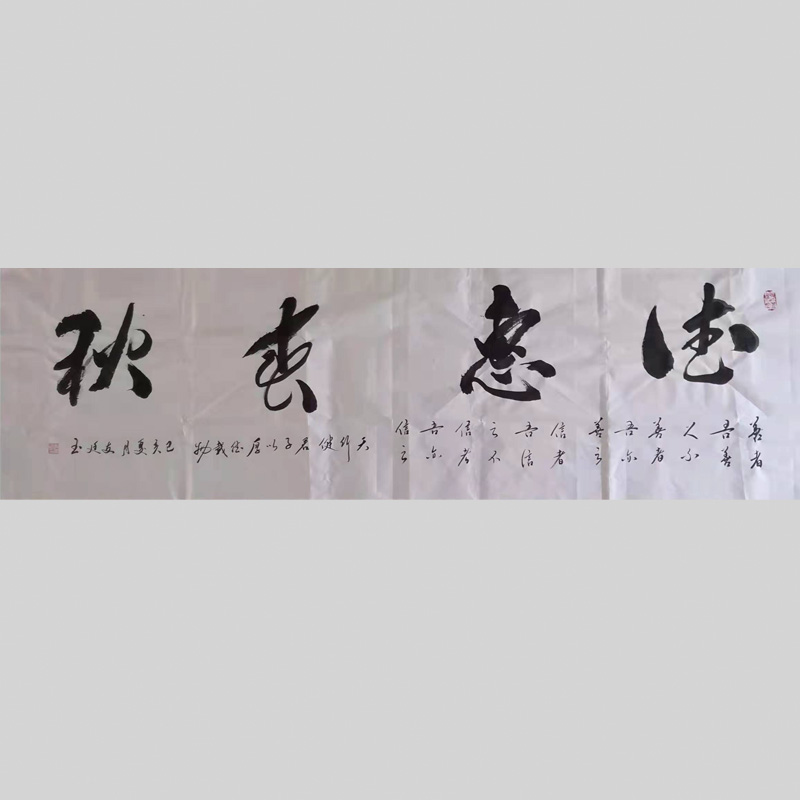 德惠春秋
善者
吾善
人不
善者
吾亦
善之
信者
吾信
之不
信者
吾亦
信之
天行健君子以厚德载物
己亥夏月